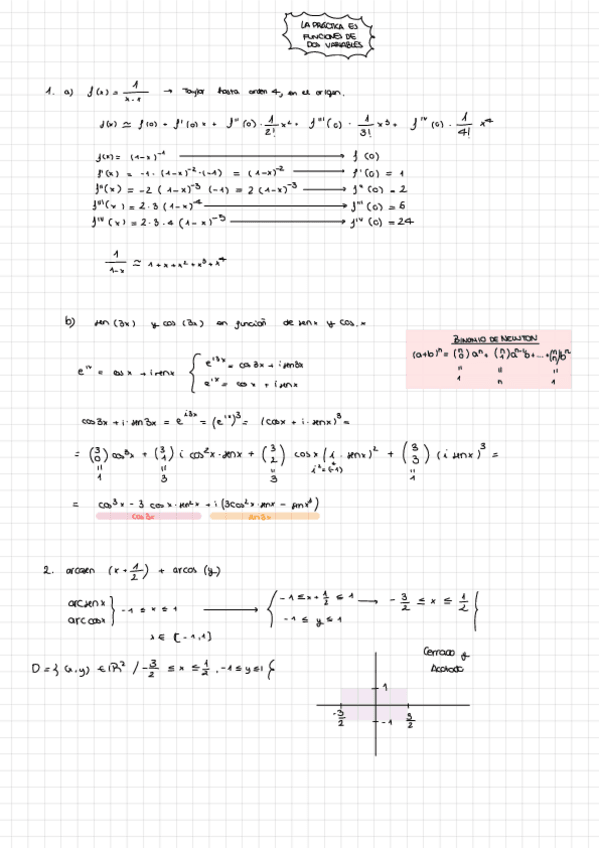 LA PRÁCTICA ES
FUNCIONES DE
DOS VARIABLES
1. a) f(x) = 1/(x-x) → Taylor hasta orden 4, en el origen.
f(x) ≃ f(0) + f'(0) x + f''(0) · 1/2! x² + f'''(0) · 1/3! x³ + f^IV(0) · 1/4! x⁴
f(x) = (1-x)⁻¹ → f(0)
f'(x) = -1 · (1-x)⁻² · (-1) = (1-x)⁻² → f'(0) = 1
f''(x) = -2 (1-x)⁻³ (-1) = 2 (1-x)⁻³ → f''(0) = 2
f'''(x) = 2·3 (1-x)⁻⁴ → f'''(0) = 6
f^IV(x) = 2·3·4 (1-x)⁻⁵ → f^IV(0) = 24
1/(1-x) ≃ 1+x+x²+x³+x⁴
b) sen (3x) y cos (3x) en función de senx y cos x
BINOMIO DE NEWTON
(a+b)ⁿ = (n 0) aⁿ + (n 1) aⁿ⁻¹b + ... + (n n) bⁿ
" " "
1 n 1
e^ix = cos x + i senx { e^i3x = cos 3x + i sen3x
e^ix = cos x + i senx
cos3x + i · sen3x = e^i3x = (e^ix)³ = (cosx + i · senx)³ =
= (3 0) cos³x + (3 1) i cos²x · senx + (3 2) cosx (i · senx)² + (3 3) (i senx)³ =
" " " i² = (-1) "
1 3 3 1
= cos³x - 3 cosx · sen²x + i (3cos²x · senx - sen³x)
cos3x sen3x
2. arcsen (x + 1/2) + arcos (y)
arcsenx
arc cosx } -1 ≤ x ≤ 1 → { -1 ≤ x + 1/2 ≤ 1 → -3/2 ≤ x ≤ 1/2
-1 ≤ y ≤ 1 }
x ∈ [-1,1]
D = { (x,y) ∈ ℝ² / -3/2 ≤ x ≤ 1/2, -1 ≤ y ≤ 1 }
Cerrado y
Acotado
1
-3/2
-1
3/2